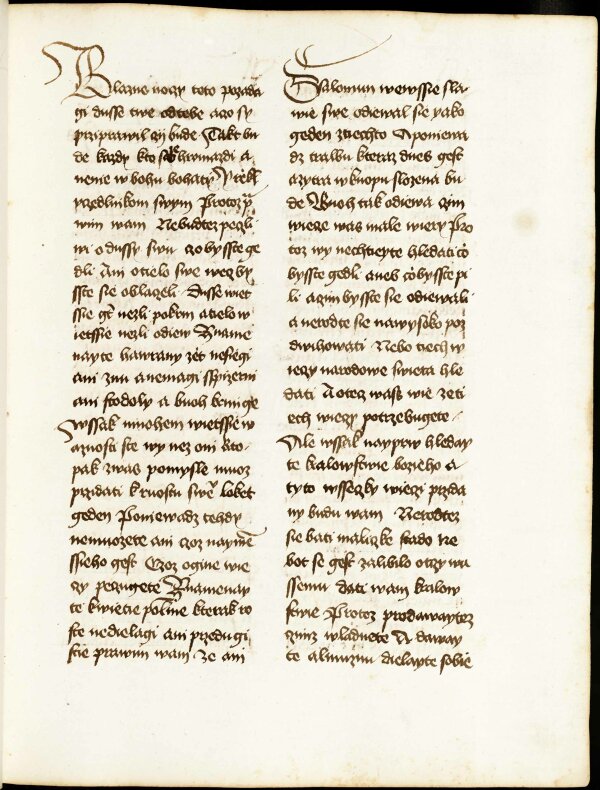 Blazne noczy teto pozada
gi dusse twe od tebe a czo sy
przyprawil czy bude Takt bu
de kazdy kto sobie hromazdi a
nenie w bohu bohaty Y tekl
vczedlnikom swym Protoz p
win wam Nebudtez peczli
wi o dussy swu czo byste ge
dli Ani o tielo swe wecz by
sste sie oblaczeli Dusse wiet
ssie gt nezli pokrm a tielo w
ietssie nezli odiew Zname
nayte hawrany zet nesiegi
ani znu a nemagi sspizerni
ani stodoly a buoh krmi ge
wssak mnohem wietssie w
aznosti ste wy nez oni Kto
pak z was pomysle muoz
przidati k zrostu swe loket
geden Poniewadz tehdy
nemuozete ani czoz naymen
ssieho gest Czoz o gine wie
czy peczugete Znamenay
te kwietie polnie kterak ro
ste nedielagi ani przedu gi
stie prawim wam ze ani
Salomun we wssie sla
wie swe odiewal sie yako
geden z tiechto A poniewa
dz trawu kteraz dnes gest
a zytra w knopu slozena bu
de Buoh tak odiewa czim
wiecze was male wiery Pro
toz wy nechtieyte hledati czo
byste gedli aneb czo byste pi
li a czim byste sie odiewali
a nerodte sie na wysoko poz
dwihowati Nebo tiech w
ieczy narodowe swieta hle
dati A otecz wass wie ze ti
ech wieczy potrzebugete
Ale wssak nayprw hleday
te kralowstwie bozieho a
tyto wsseczky wieczi przida
ny budu wam Nerodtez
sie bati maliczke stado ne
bot se gest zalibilo otczy wa
ssemu dati wam kralow
stwie Protoz prodawaytez
czimz wladnete A daway
te almuznu dielayte sobie